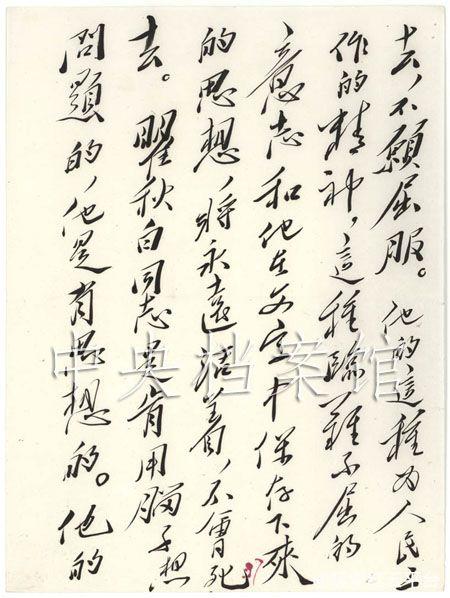 去，不願屈服。他的這種为人民工
作的精神，這種臨難不屈的
意志和他在文字中保存下來
的思想，将永遠活着，不會死
去。瞿秋白同志是肯用腦子想
問題的，他是有思想的。他的
中央档案馆